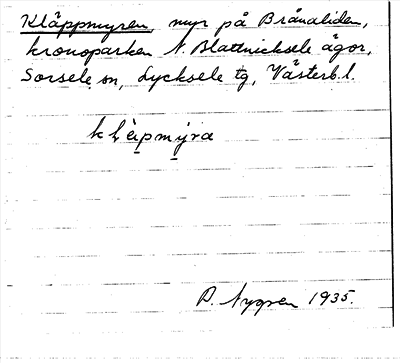 Kläppmyren, myr på Brånaliden,
kronoparken N. Blattnicksele ägor,
Sorsele sn, Lycksele tg, Västerb. l.
klèipmýra
P. Nygren 1935.